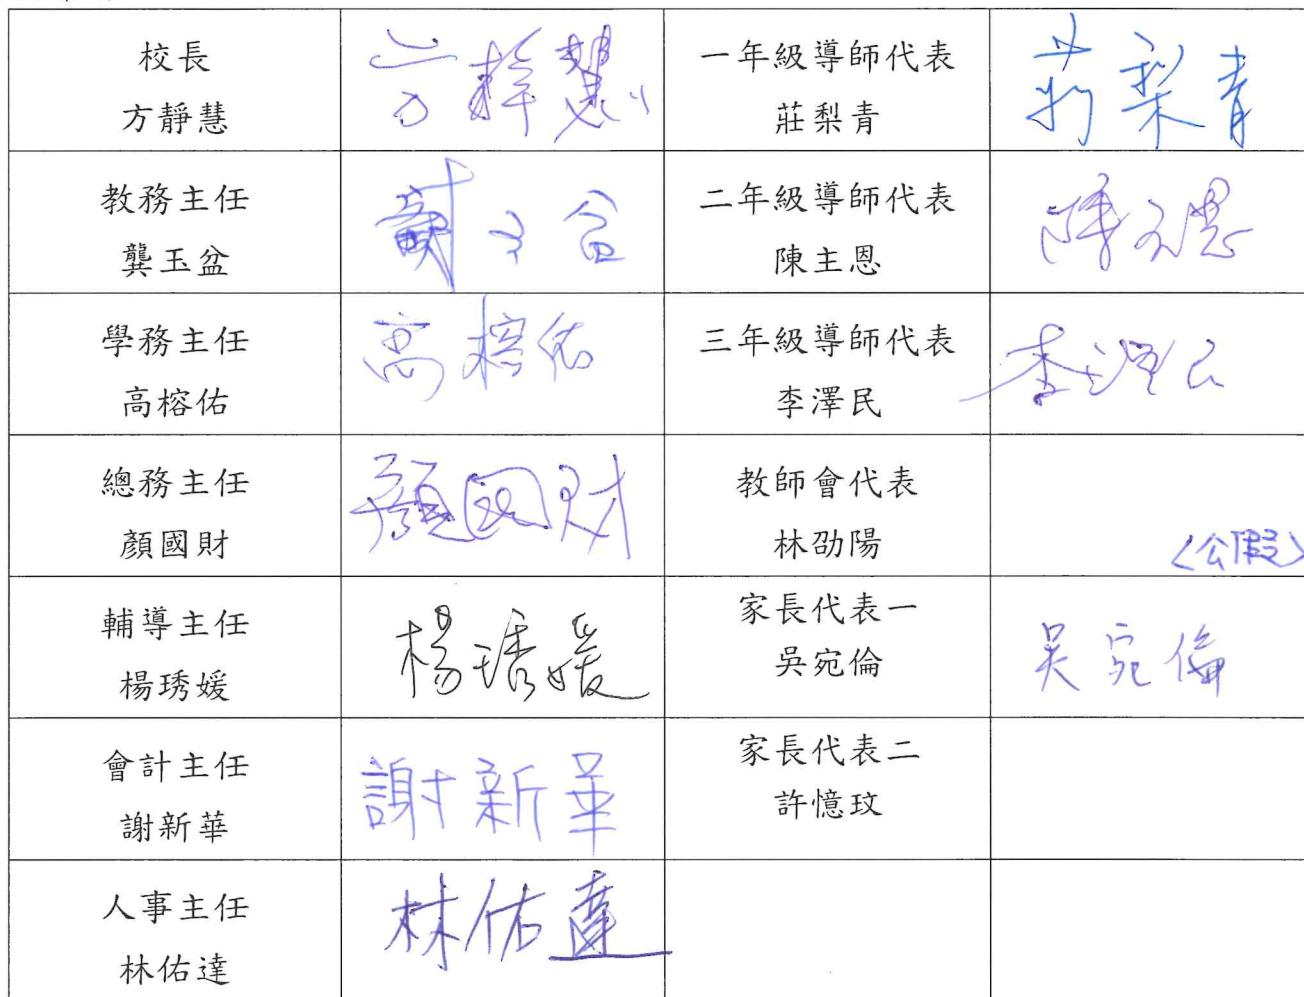 校長
方靜慧
方靜慧
一年級導師代表
莊梨青
莊梨青
教務主任
龔玉盆
龔玉盆
二年級導師代表
陳主恩
陳主恩
學務主任
高榕佑
高榕佑
三年級導師代表
李澤民
李澤民
總務主任
顏國財
顏國財
教師會代表
林劭陽
(公假)
輔導主任
楊琇媛
楊琇媛
家長代表一
吳宛倫
吳宛倫
會計主任
謝新華
謝新華
家長代表二
許憶玟
人事主任
林佑達
林佑達